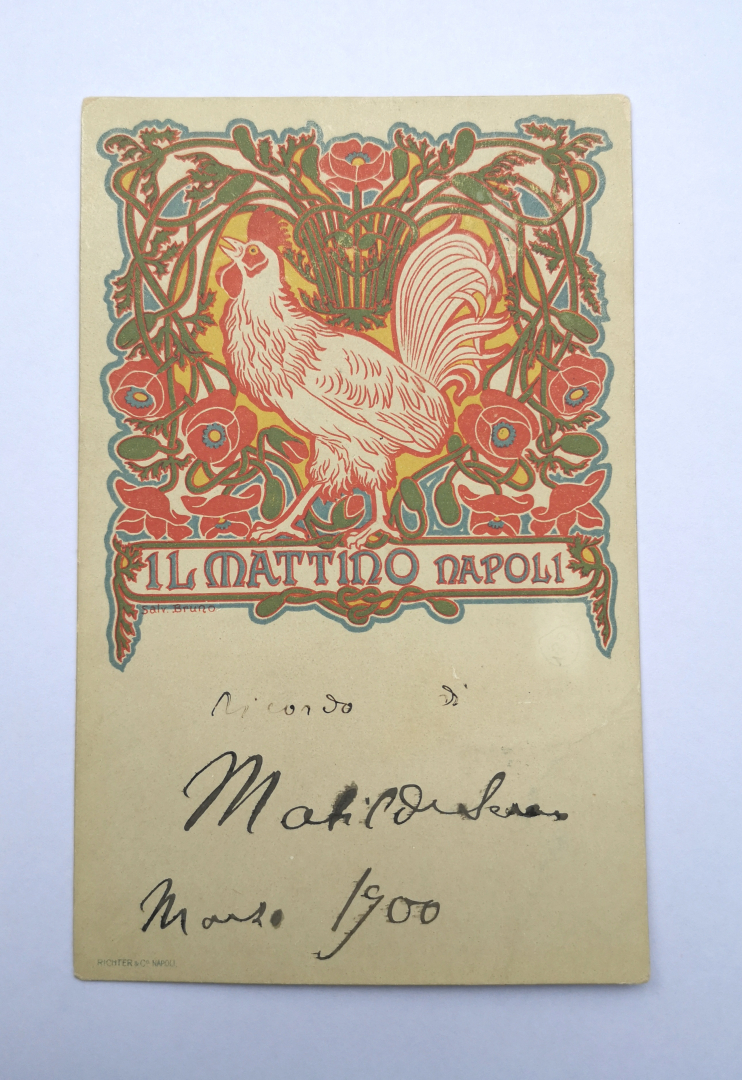 IL MATTINO NAPOLI
Salv. Bruno
ricordo di
Matilde Serao
Marzo 1900
RICHTER & Cº NAPOLI.